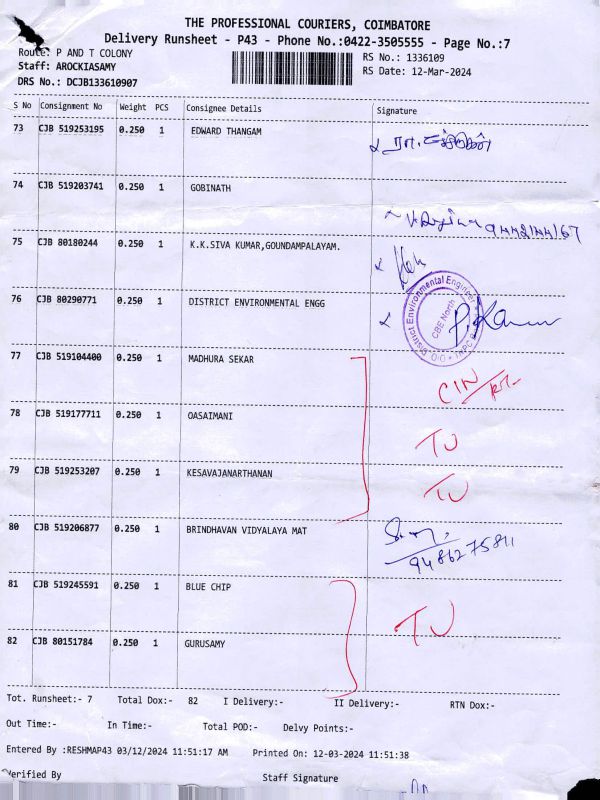 THE PROFESSIONAL COURIERS, COIMBATORE
Delivery Runsheet - P43 - Phone No.:0422-3505555 - Page No.:7
Route: P AND T COLONY
RS No.: 1336109
Staff: AROCKIASAMY
RS Date: 12-Mar-2024
DRS No.: DCJB133610907
S No Consignment No Weight PCS Consignee Details Signature
73 CJB 519253195 0.250 1 EDWARD THANGAM
74 CJB 519203741 0.250 1 GOBINATH
75 CJB 80180244 0.250 1 K.K.SIVA KUMAR,GOUNDAMPALAYAM.
76 CJB 80290771 0.250 1 DISTRICT ENVIRONMENTAL ENGG
District Environmental Engineer
CBE North
77 CJB 519104400 0.250 1 MADHURA SEKAR
78 CJB 519177711 0.250 1 OASAIMANI TU
79 CJB 519253207 0.250 1 KESAVAJANARTHANAN TU
80 CJB 519206877 0.250 1 BRINDHAVAN VIDYALAYA MAT
81 CJB 519245591 0.250 1 BLUE CHIP TU
82 CJB 80151784 0.250 1 GURUSAMY
Tot. Runsheet:- 7 Total Dox:- 82 I Delivery:- II Delivery:- RTN Dox:-
Out Time:- In Time:- Total POD:- Delvy Points:-
Entered By :RESHMAP43 03/12/2024 11:51:17 AM Printed On: 12-03-2024 11:51:38
Verified By Staff Signature